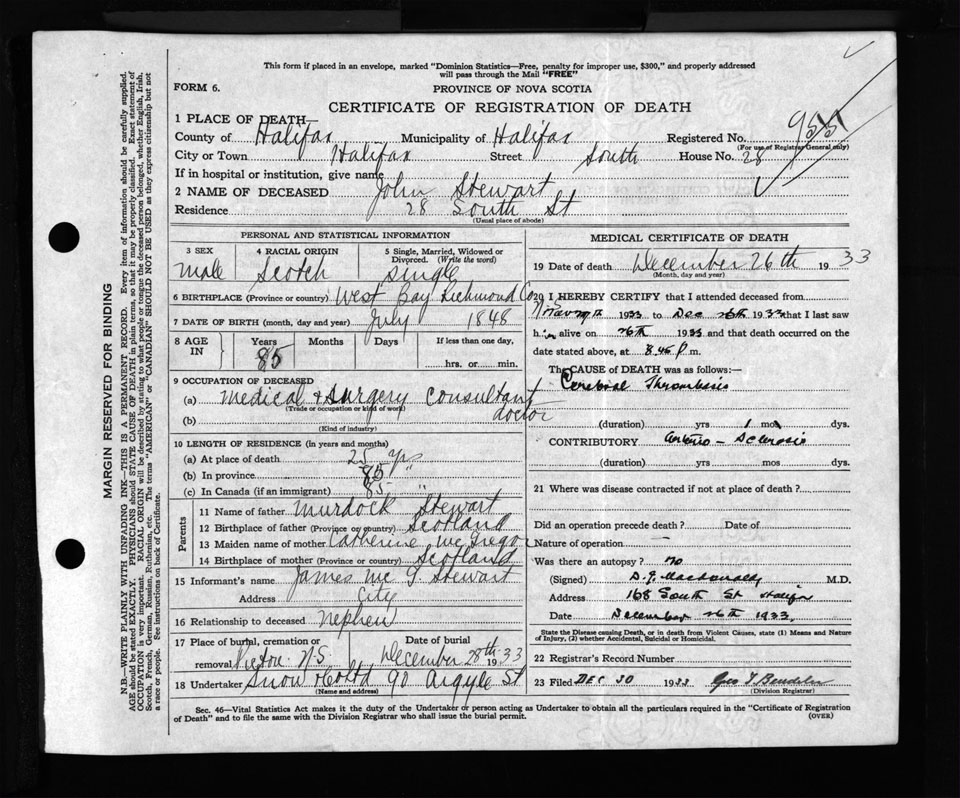 This form if placed in an envelope, marked "Dominion Statistics—Free, penalty for improper use, $300," and properly addressed
will pass through the Mail "FREE"
FORM 6.
PROVINCE OF NOVA SCOTIA
CERTIFICATE OF REGISTRATION OF DEATH
1 PLACE OF DEATH—
County of Halifax Municipality of Halifax Registered No.
(For use of Registrar General only)
City or Town Halifax Street South House No. 28
If in hospital or institution, give name
2 NAME OF DECEASED John Stewart
Residence 28 South St
(Usual place of abode)
PERSONAL AND STATISTICAL INFORMATION
3 SEX 4 RACIAL ORIGIN 5 Single, Married, Widowed or
Divorced. (Write the word)
male Scotch single
6 BIRTHPLACE (Province or country) West Bay Richmond Co
7 DATE OF BIRTH (month, day and year) July 1848
8 AGE IN Years Months Days If less than one day,
85 hrs. or min.
9 OCCUPATION OF DECEASED
(a) Medical & Surgery Consultant
(Trade or occupation or kind of work)
doctor
(b)
(Kind of industry)
10 LENGTH OF RESIDENCE (in years and months)
(a) At place of death 25 yrs
(b) In province 85 "
(c) In Canada (if an immigrant) 85 "
Parents
11 Name of father Murdock Stewart
12 Birthplace of father (Province or country) Scotland
13 Maiden name of mother Catherine McGregor
14 Birthplace of mother (Province or country) Scotland
15 Informant's name James Mc G Stewart
Address City
16 Relationship to deceased nephew
17 Place of burial, cremation or Date of burial
removal Pictou N.S. December 28th 1933
18 Undertaker Snow & Co Ltd 90 Argyle St
(Name and address)
MEDICAL CERTIFICATE OF DEATH
19 Date of death December 26th 1933
(Month, day and year)
20 I HEREBY CERTIFY that I attended deceased from
1933 to Dec 26th 1933 that I last saw
him alive on 26th 1933 and that death occurred on
date stated above, at 8.45 P m.
The CAUSE of DEATH was as follows:—
Cerebral Thrombosis
(duration) yrs 1 mos dys.
CONTRIBUTORY Arterio-Sclerosis
(duration) yrs mos dys.
21 Where was disease contracted if not at place of death?
Did an operation precede death? Date of
Nature of operation —
Was there an autopsy? no
(Signed) D. J. MacDonald M.D.
Address 168 South St Halifax
Date December 26th 1933.
State the Disease causing Death, or in death from Violent Causes, state (1) Means and Nature
of Injury, (2) whether Accidental, Suicidal or Homicidal.
22 Registrar's Record Number
23 Filed DEC 30 1933
(Division Registrar)
Sec. 46—Vital Statistics Act makes it the duty of the Undertaker or person acting as Undertaker to obtain all the particulars required in the "Certificate of Registration
of Death" and to file the same with the Division Registrar who shall issue the burial permit.
(OVER)
MARGIN RESERVED FOR BINDING
N.B.—WRITE PLAINLY WITH UNFADING INK—THIS IS A PERMANENT RECORD. Every item of information should be carefully supplied.
AGE should be stated EXACTLY. PHYSICIANS should STATE CAUSE OF DEATH in plain terms, so that it may be properly classified. Exact statement of
OCCUPATION is very important. RACIAL ORIGIN will be described by stating to what people or tongue the deceased person belonged, whether English, Irish,
Scotch, French, German, Russian, Ruthenian, etc. The terms "AMERICAN" or "CANADIAN" SHOULD NOT BE USED as they express citizenship but not
a race or people. See instructions on back of Certificate.